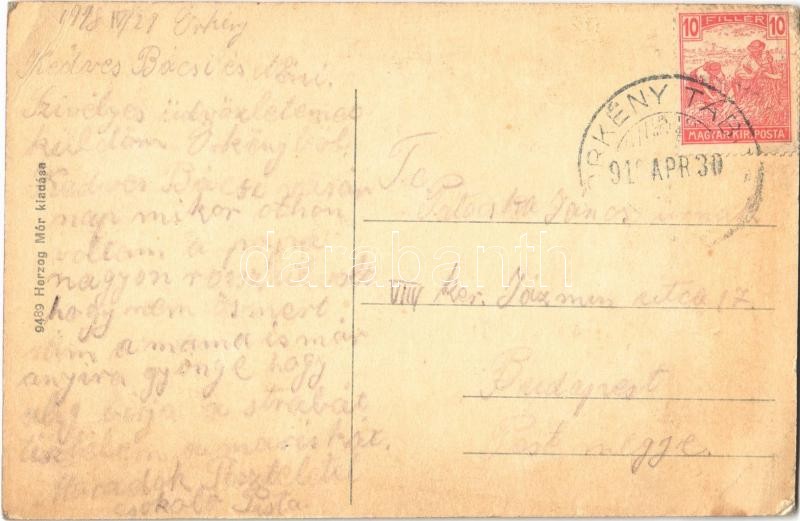 1918 IV/29 Örkény
Kedves Bácsi és Néni.
Szivélyes üdvözletemet
küldöm Örkényből.
Kedves Bácsi vasár
nap mikor othon
voltam a
nagyon rosszul volt
hogy nem ösmert
a mama is már
anyira gyönge hogy
alig birja a strabát
tisztelem a mariskát.
Maradok Tisztelete
csokoló Pista
9489 Herzog Mór kiadása
10 FILLÉR 10
MAGYAR KIR. POSTA
ÖRKÉNY TÁB
918 APR 30
T. c.
János
VIII ker. Jázmin utca 17.
Budapest
Pest megye.
darabanth